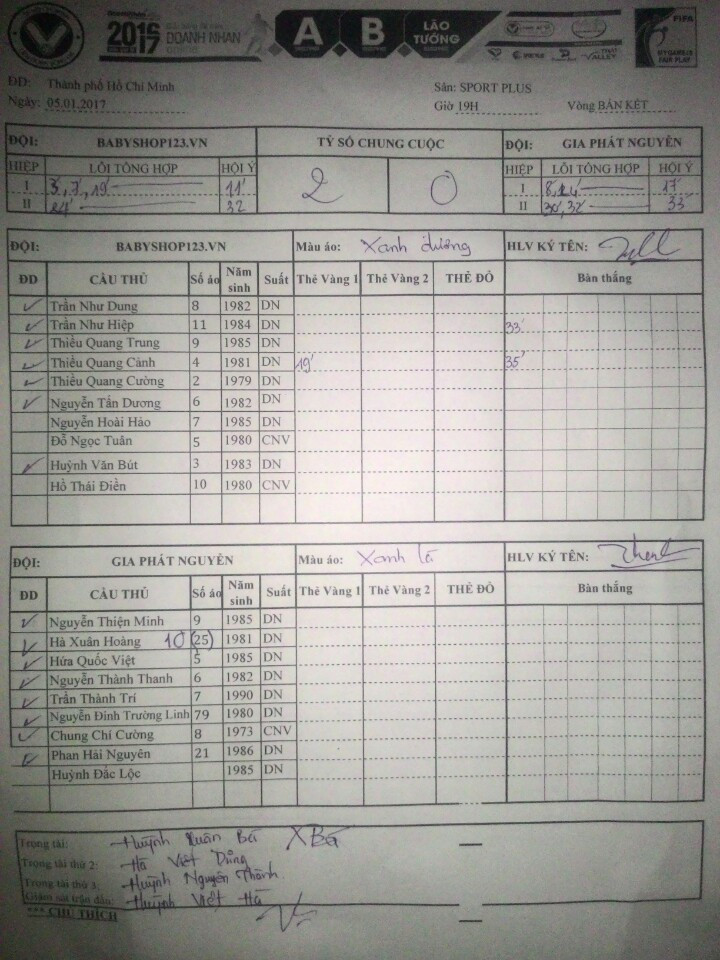 2016 2017 DOANH NHÂN A B LÃO TƯỚNG FIFA
MY GAME IS FAIR PLAY
ĐD: Thành phố Hồ Chí Minh Sân: SPORT PLUS
Ngày: 05.01.2017 Giờ 19H Vòng BÁN KẾT
ĐỘI: BABYSHOP123.VN TỶ SỐ CHUNG CUỘC ĐỘI: GIA PHÁT NGUYÊN
HIỆP LỖI TỔNG HỢP HỘI Ý 2 0 HIỆP LỖI TỔNG HỢP HỘI Ý
I 3', 7', 19' 11' I 17'
II 24' 32 II 30', 32' 33'
ĐỘI: BABYSHOP123.VN Màu áo: Xanh dương HLV KÝ TÊN:
ĐD CẦU THỦ Số áo Năm sinh Suất Thẻ Vàng 1 Thẻ Vàng 2 THẺ ĐỎ Bàn thắng
Trần Như Dung 8 1982 DN
Trần Như Hiệp 11 1984 DN 33'
Thiều Quang Trung 9 1985 DN
Thiều Quang Cảnh 4 1981 DN 19' 35'
Thiều Quang Cường 2 1979 DN
Nguyễn Tấn Dương 6 1982 DN
Nguyễn Hoài Hảo 7 1985 DN
Đỗ Ngọc Tuân 5 1980 CNV
Huỳnh Văn Bút 3 1983 DN
Hồ Thái Điền 10 1980 CNV
ĐỘI: GIA PHÁT NGUYÊN Màu áo: Xanh lá HLV KÝ TÊN:
ĐD CẦU THỦ Số áo Năm sinh Suất Thẻ Vàng 1 Thẻ Vàng 2 THẺ ĐỎ Bàn thắng
Nguyễn Thiện Minh 9 1985 DN
Hà Xuân Hoàng 10 (25) 1981 DN
Hứa Quốc Việt 5 1985 DN
Nguyễn Thành Thanh 6 1982 DN
Trần Thành Trí 7 1990 DN
Nguyễn Đình Trường Linh 79 1980 DN
Chung Chí Cường 8 1973 CNV
Phan Hải Nguyên 21 1986 DN
Huỳnh Đắc Lộc 1985 DN
Trọng tài: Huỳnh Xuân Bá XBá
Trọng tài thứ 2: Hà Việt Dũng
Trọng tài thứ 3: Huỳnh Nguyên Thành
Giám sát trận đấu: Huỳnh Việt Hà
*** CHÚ THÍCH